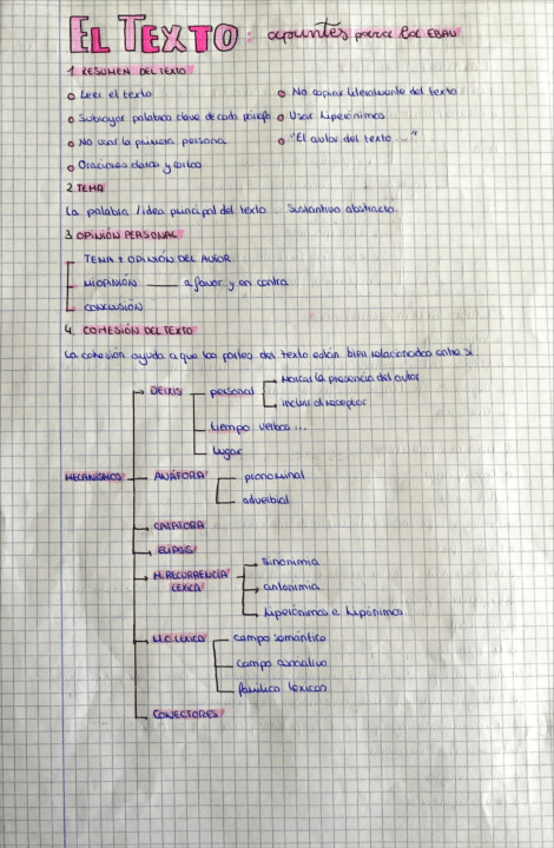 EL TEXTO: apuntes para la EBAU
1 RESUMEN DEL TEXTO
Leer el texto
No copiar literalmente del texto
Subrayar palabra clave de cada párrafo
Usar hiperónimos
No usar la primera persona
"El autor del texto ... "
Oraciones claras y cortas
2 TEMA
La palabra / idea principal del texto. Sustantivo abstracto.
3 OPINIÓN PERSONAL
TEMA + OPINIÓN DEL AUTOR
MI OPINIÓN a favor y en contra
CONCLUSIÓN
4. COHESIÓN DEL TEXTO
La cohesión ayuda a que las partes del texto estén bien relacionadas entre sí.
DEIXIS
personal
Marcar la presencia del autor
incluir al receptor
tiempo verbos ...
lugar
MECANISMOS
ANÁFORA
pronominal
adverbial
CATÁFORA
ELIPSIS
M. RECURRENCIA LÉXICA
sinonimia
antonimia
hiperónimos e hipónimos
M.C LÉXICO
campo semántico
campo asociativo
familias léxicas
CONECTORES